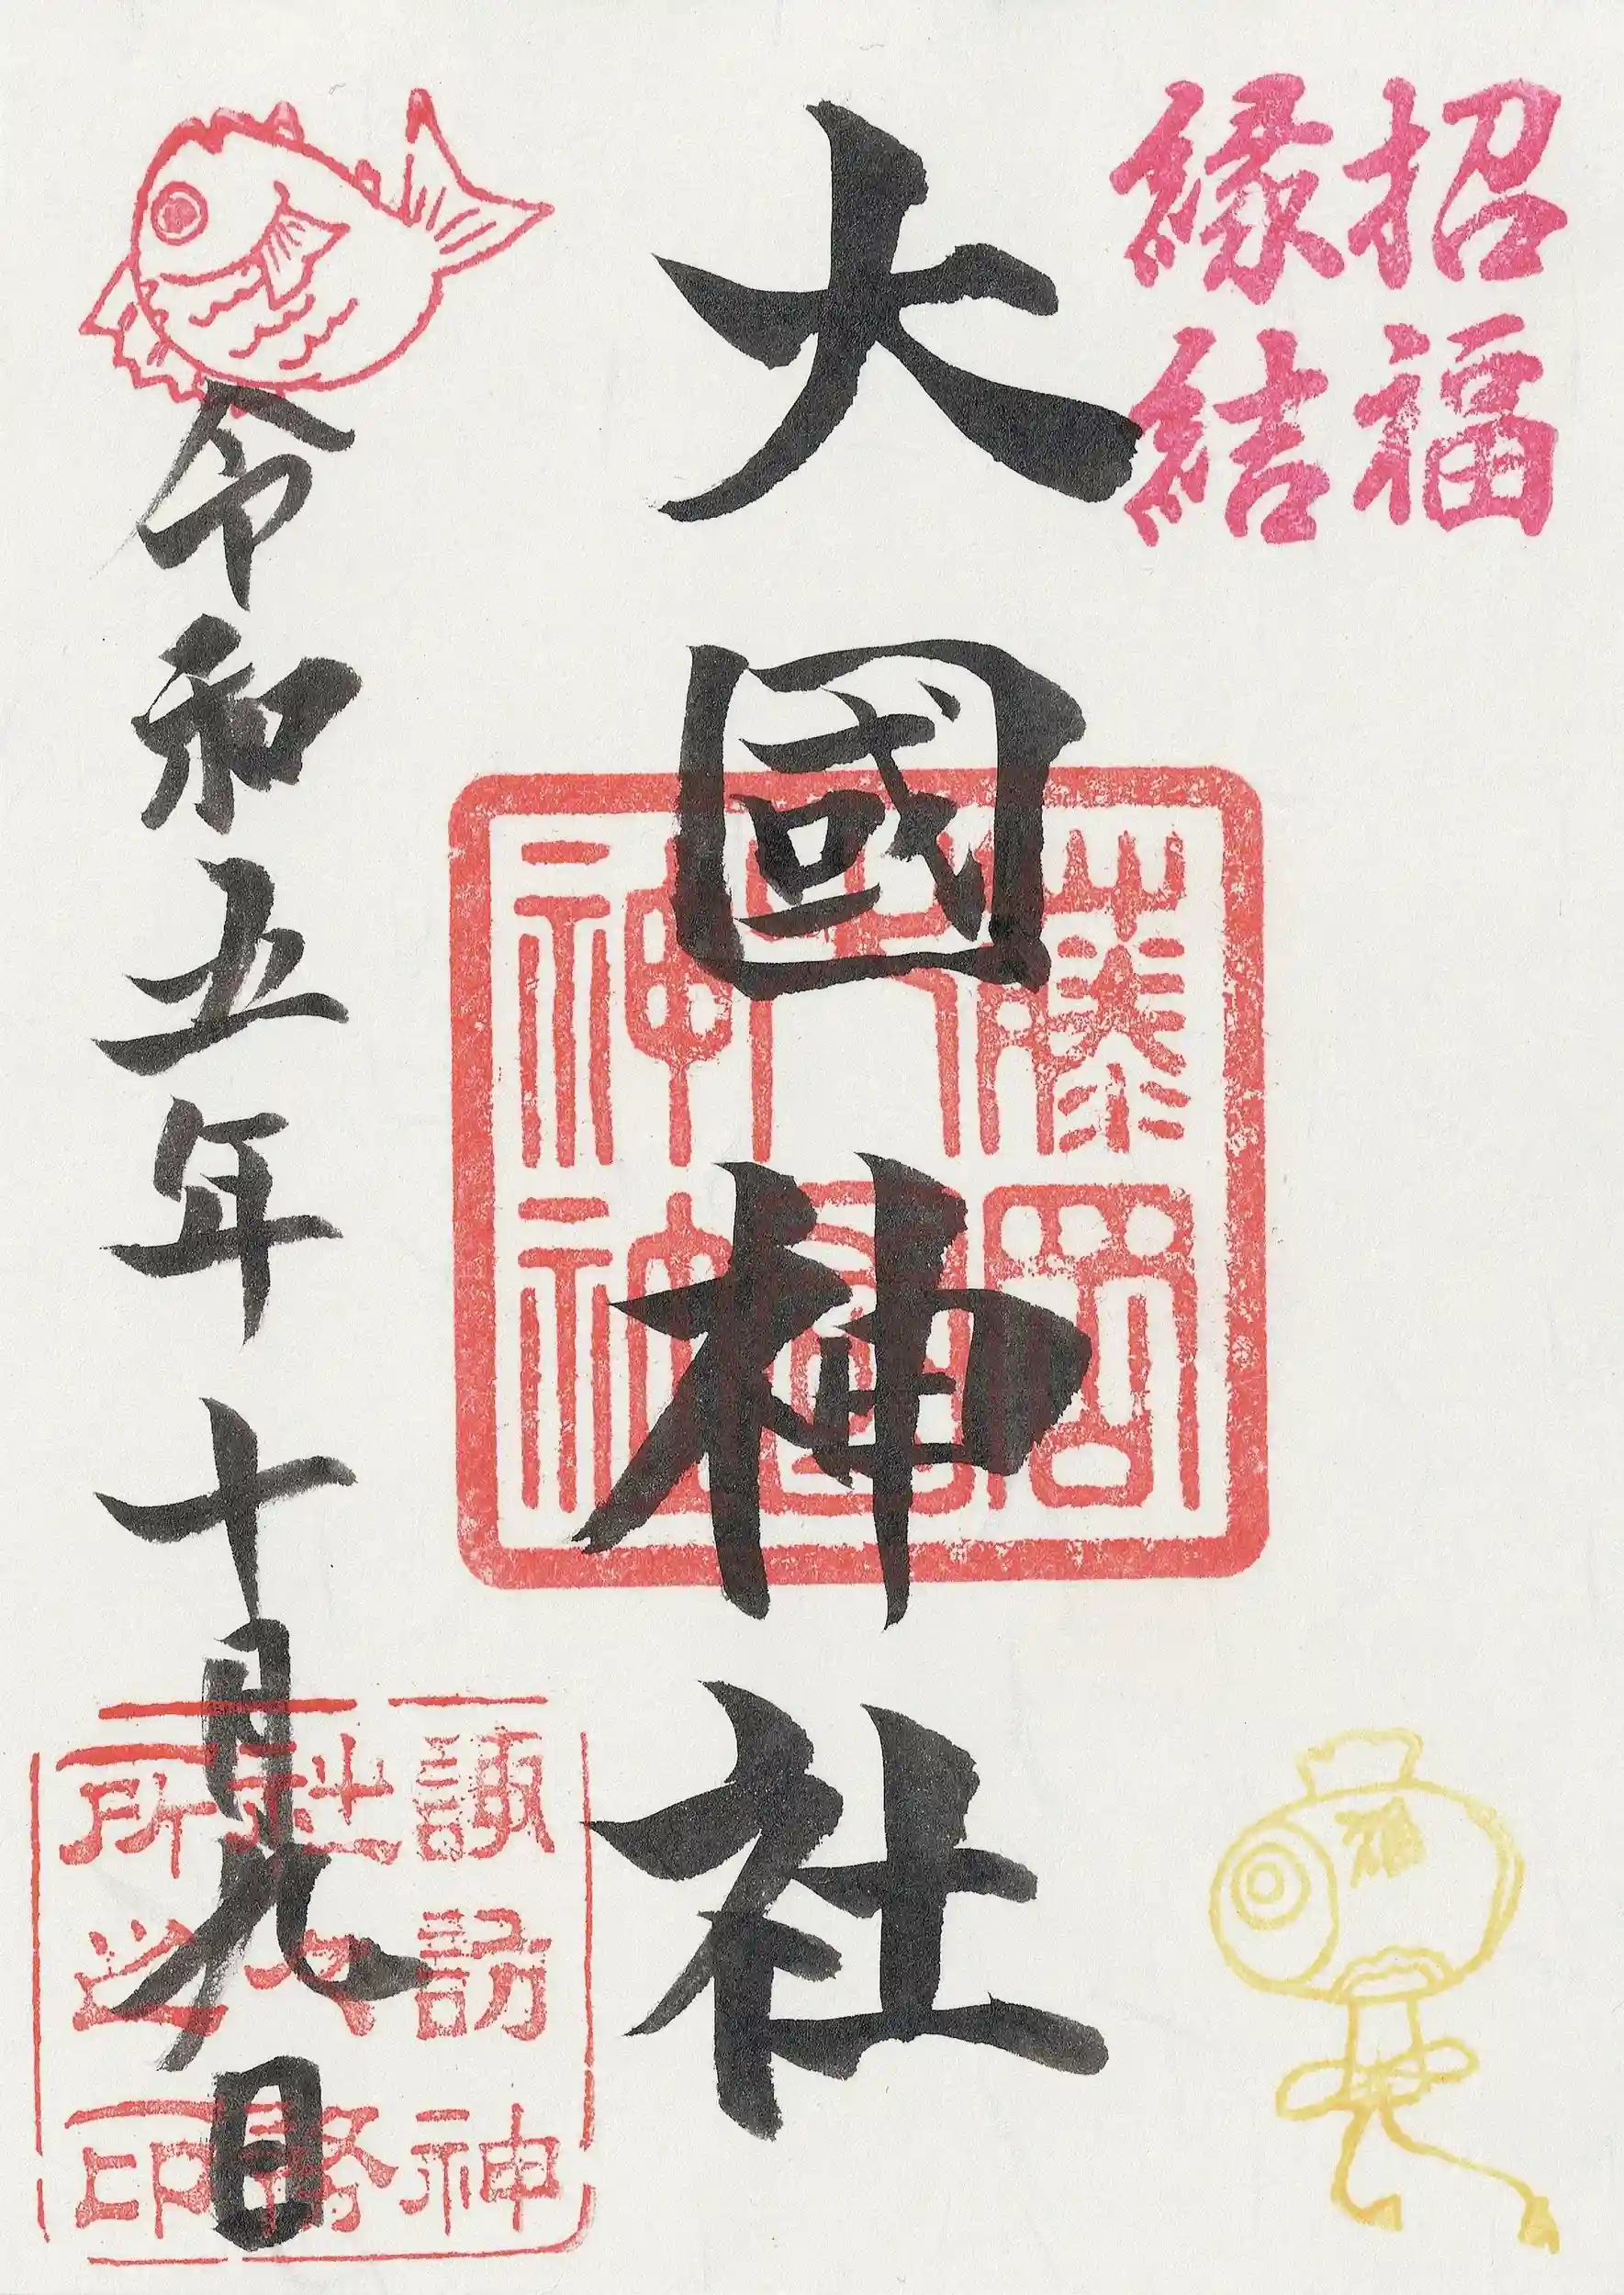 招福
縁結
大國神社
藤岡
福
令和五年十月九日
諏訪神
社々務
所之印